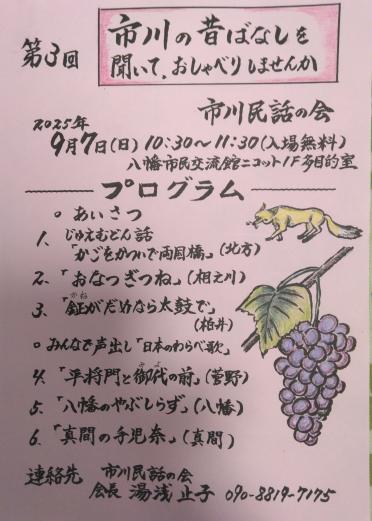 第3回
市川の昔ばなしを
聞いて、おしゃべりしませんか
市川民話の会
2025年
9月7日(日) 10:30~11:30(入場無料)
八幡市民交流館ニコット1F多目的室
プログラム
○ あいさつ
1. じゅえむどん話
「かごをかついで両国橋」(北方)
2. 「おなつぎつね」(相之川)
3. 「鉦がだめなら太鼓で」
かね
(柏井)
○ みんなで声出し「日本のわらべ歌」
4. 「平将門と御代の前」(菅野)
みよ
5. 「八幡のやぶしらず」(八幡)
6. 「真間の手児奈」(真間)
連絡先 市川民話の会
会長 湯浅止子 090-8819-7175